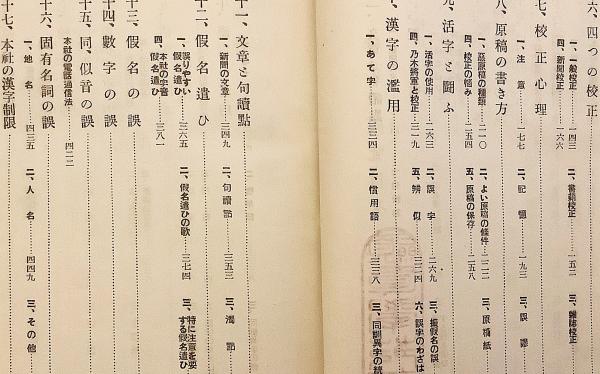 六、四つの校正
一、一般校正 一四三 二、書籍校正 一五二 三、雜誌校正
四、新聞校正 一六六
七、校正心理
一、注意 一七七 二、記憶 一九三 三、誤謬
八、原稿の書き方
一、惡原稿の種類 二一〇 二、よい原稿の條件 二二二 三、原稿紙
四、校正の惱み 二五四 五、原稿の保存 二五八
九、活字と鬪ふ
一、活字の使用 二六三 二、誤字 二六九 三、振假名の誤
四、乃木將軍と校正 三一九 五、辨似 三二四 六、誤字のわざは
十、漢字の濫用
一、あて字 三三四 二、慣用語 三三八 三、同訓異字の統
十一、文章と句讀點
一、新聞の文章 三四九 二、句讀點 三五三 三、濁點
十二、假名遣ひ
一、誤りやすい假名遣ひ 三六五 二、假名遣ひの歌 三七四 三、特に注意を要する假名遣ひ
四、本社の字音假名遣ひ 三八一
十三、假名の誤
十四、數字の誤
十五、同、似音の誤
本社の電話通信法 四二二
十六、固有名詞の誤
一、地名 四三五 二、人名 四四九 三、その他
十七、本社の漢字制限